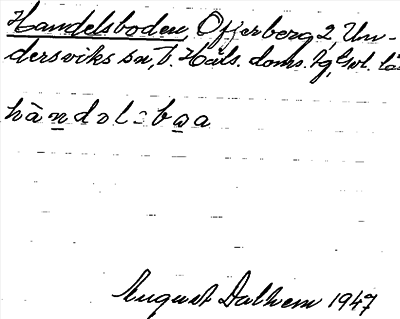 Handelsboden, Offerberg 2, Un-
dersviks sn, V. Häls. doms. fg, Gvl. län
hàndəl:boa
August Dalhem 1947